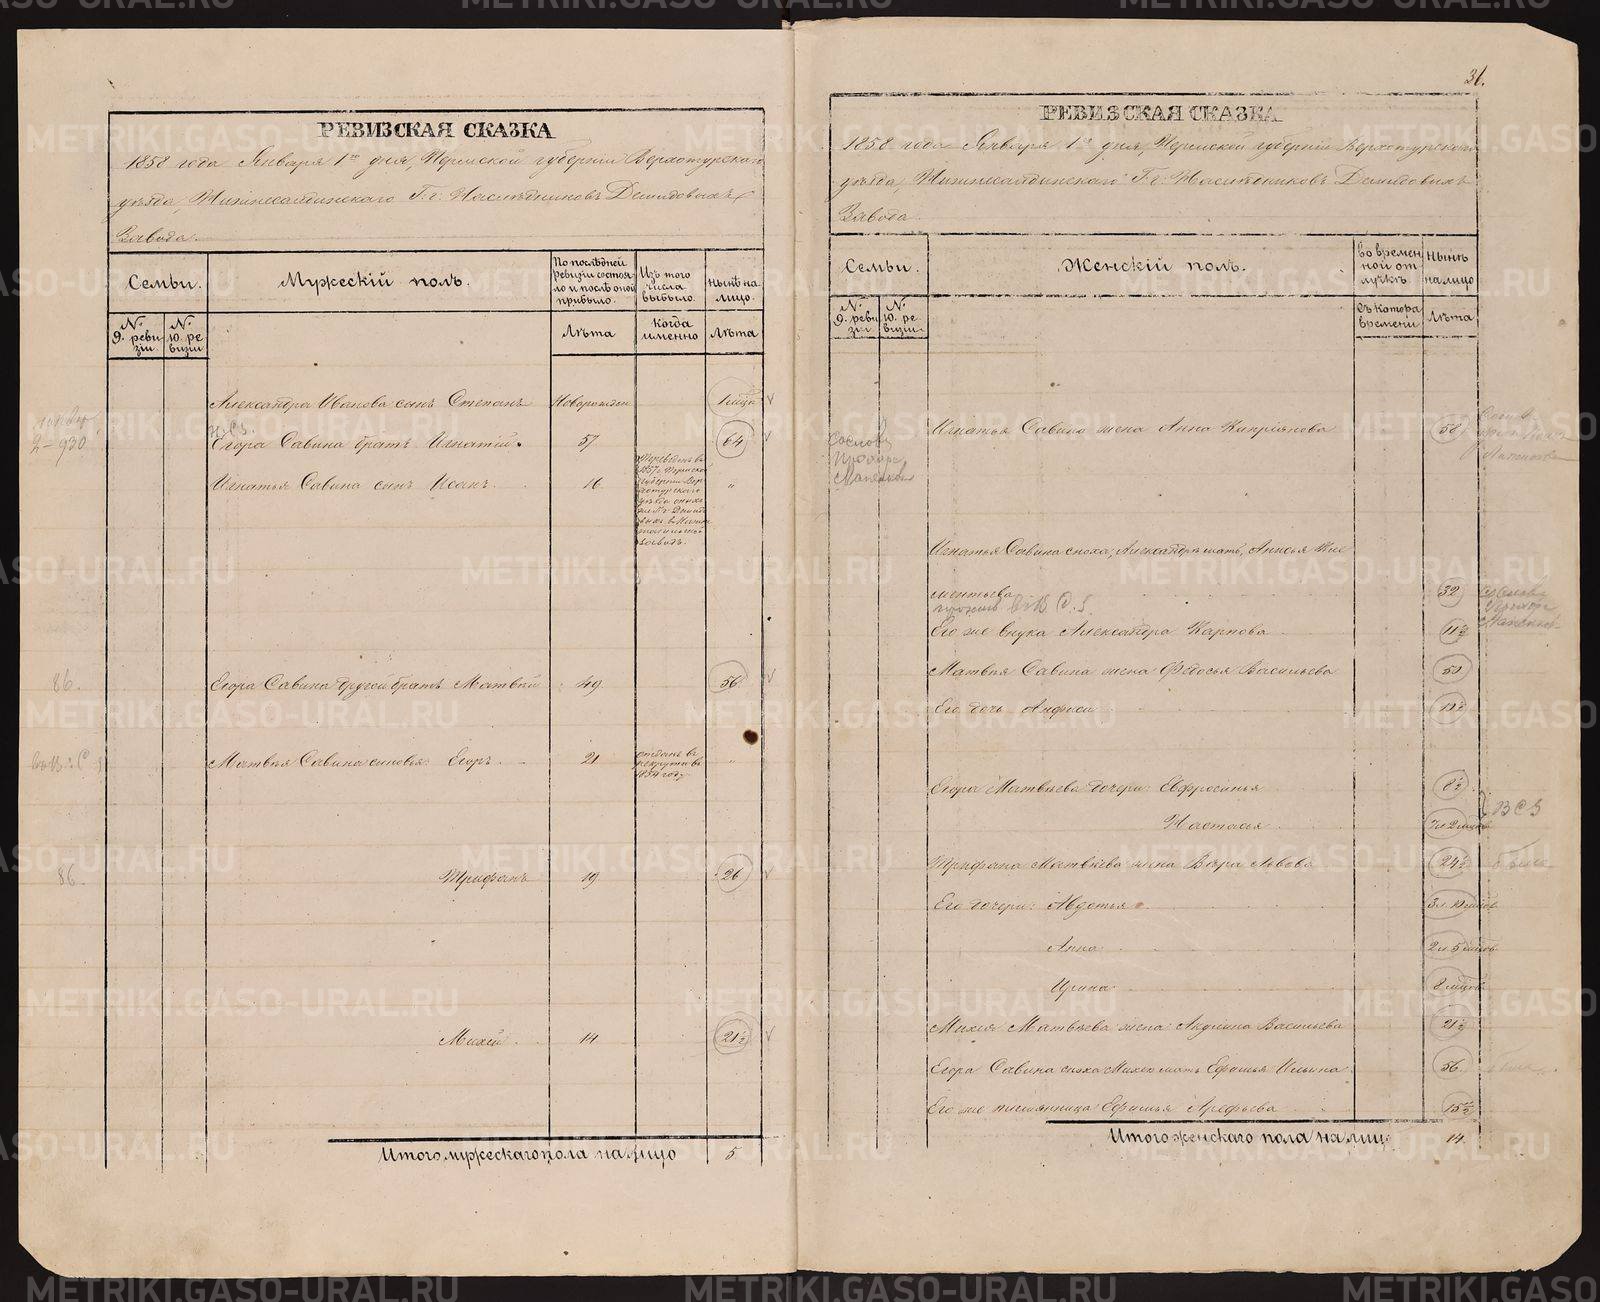 31.
РЕВИЗСКАЯ СКАЗКА
1858 года Января 1го дня, Пермской губерніи Верхотурскаго
уѣзда, Нижнесалдинскаго Г.г. Наслѣдниковъ Демидовыхъ
Завода.
Семьи.
Мужескій полъ.
По послѣдней ревизіи состояло и послѣ оной прибыло.
Изъ того числа выбыло.
Нынѣ на лицо.
№ 9. ревизіи.
№ 10. ревизіи.
Лѣта
Когда именно
Лѣта
Александра Иванова сынъ Степанъ Новорожден 1 мѣс
2-930
Егора Савина братъ Игнатій. 57 64
Игнатья Савина сынъ Исакъ 16 "
Переведенъ въ
1857 г. Пермской
губерніи Вер
хотурскаго
уѣзда
заводъ.
86.
Егора Савина другой братъ Матвей 49. 56.
Матвея Савина сыновья: Егоръ 21 "
отданъ въ
рекруты въ
1854 году
86.
Трифанъ 19 26
Михей 14 21½
Итого мужескаго пола на лицо 5
РЕВИЗСКАЯ СКАЗКА
1858 года Января 1го дня, Пермской губерніи Верхотурскаго
уѣзда, Нижнесалдинскаго Г.г. Наслѣдниковъ Демидовыхъ
Завода.
Семьи.
Женскій полъ.
Во временной отлучкѣ
Нынѣ на лицо
№ 9. ревизіи.
№ 10. ревизіи.
Съ котора времени
Лѣта
Игнатья Савина жена Анна Кипріянова 58
Игнатья Савина сноха, Александрѣ мать, Анисья Кле
ментьева 32
Его же внука Александра Карпова 11½
Матвея Савина жена Федосья Васильева
Его дочь Анфиса
Егора Матвеева дочери: Евфросинья 8½
Настасья
ВСЗ
Трифана Матвеева жена Вера Львова 24½
Его дочери: Авдотья
Анна 2 л. 5 мѣсяцовъ
Ирина 8 мѣсяцовъ
Михея Матвеева жена Васильева 21½
Егора Савина сноха Михею мать Ефимья Ильина 56.
Его же племянница Ефимья Арефьева 15½
Итого женскаго пола на лицо 14.
METRIKI.GASO-URAL.RU